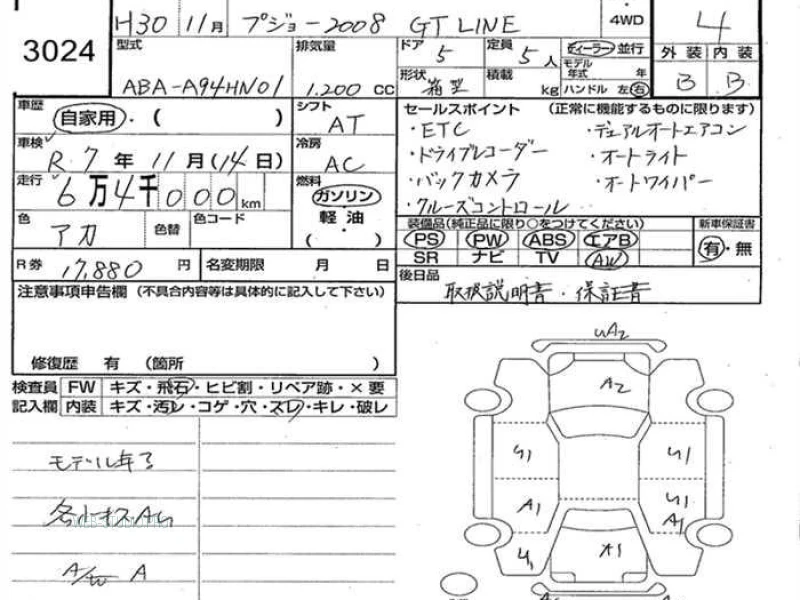 3024
H30 11月 プジョー2008 GT LINE 4WD 4
型式 ABA-A94HN01
排気量 1.200 CC
ドア 5
定員 5人
ディーラー 並行
モデル年式 年
形状 箱型
積載 kg
ハンドル 左 右
外装 内装
B B
車歴 自家用・( )
シフト AT
車検 R7年11月(14日)
冷房 AC
走行 6万4千000km
燃料 ガソリン
軽油
( ・ )
色 アカ
色替
色コード
セールスポイント (正常に機能するものに限ります)
・ETC ・デュアルオートエアコン
・ドライブレコーダー ・オートライト
・バックカメラ ・オートワイパー
・クルーズコントロール
装備品(純正品に限り○をつけてください)
新車保証書
PS PW ABS エアB
有・無
SR ナビ TV AW
R券 17,880 円
名変期限 月 日
後日品
取扱説明書・保証書
注意事項申告欄 (不具合内容等は具体的に記入して下さい)
修復歴 有 (箇所 )
検査員 FW キズ・飛石・ヒビ割・リペア跡・×要
記入欄 内装 キズ・汚レ・コゲ・穴・スレ・キレ・破レ
A2
A2
A1
A1